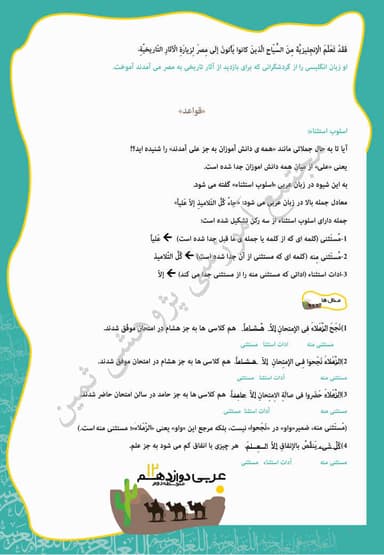 فَقَدْ تَعَلَّمَ الْإنجليزيَّةَ مِنَ السُّيّاحِ الَّذينَ كانوا يَأتونَ إلی مِصرَ لِزيارَةِ الْآثارِ التّاريخيَّةِ.
او زبان انگلیسی را از گردشگرانی که برای بازدید از آثار تاریخی به مصر می آمدند آموخت.
«قواعد»
اسلوب استثناء:
آیا تا به حال جملاتی مانند «همه ی دانش آموزان به جز علی آمدند» را شنیده اید؟!
یعنی «علی» از میان همه دانش اموزان جدا شده است.
به این شیوه در زبان عربی «اسلوب استثناء» گفته می شود.
معادل جمله بالا در زبان عربی می شود: «جاءَ كُلُّ التّلاميذِ إلاّ عَليّاً»
جمله دارای اسلوب استثناء از سه رکن تشکیل شده است:
1-مُستَثنی (کلمه ای که از کلمه یا جمله ی ما قبل جدا شده است) ← عَليّاً
2-مُستثنی مِنه (کلمه ای که مستثنی از آن جدا شده است) ← كُلُّ التّلاميذ
3-ادات استثناء (اداتی که مستثنی منه را از مستثنی جدا می کند) ← إلاّ
مثال ها
1)نَجَحَ الزُّمَلاءُ فی الإمتحانِ إلاّ هِـشـاماً. هم کلاسی ها به جز هشام در امتحان موفق شدند.
مستثنی منه ادات استثنا مستثنی
2)الزُّمَلاءُ نَجَحوا فِی الإمتِحانِ إلّا هِـشـاماً. هم کلاسی ها به جز هشام در امتحان موفق شدند.
مستثنی منه أدات استثنا مستثنی
3)الزُّمَلاءُ حَضَروا فی صالَةِ الإمتِحانِ إلاّ حامِداً. هم کلاسی ها به جز حامد در سالن امتحان حاضر شدند.
مستثنی منه أدات استثنا مستثنی
(مُستثنی منه، ضمیر«واو» در «نَجَحوا» نیست، بلکه مرجع این «واو» یعنی «الزُّمَلاء» مستثنی منه است.)
4)كُلُّ شَیءٍ يَنقُصُ بِالإنفاقِ إلاَّ الـعِـلـمَ. هر چیزی با انفاق کم می شود به جز علم.
مستثنی منه أدات استثناء مستثنی
عربی دوازدهم ۱۲
متوسطه دوم